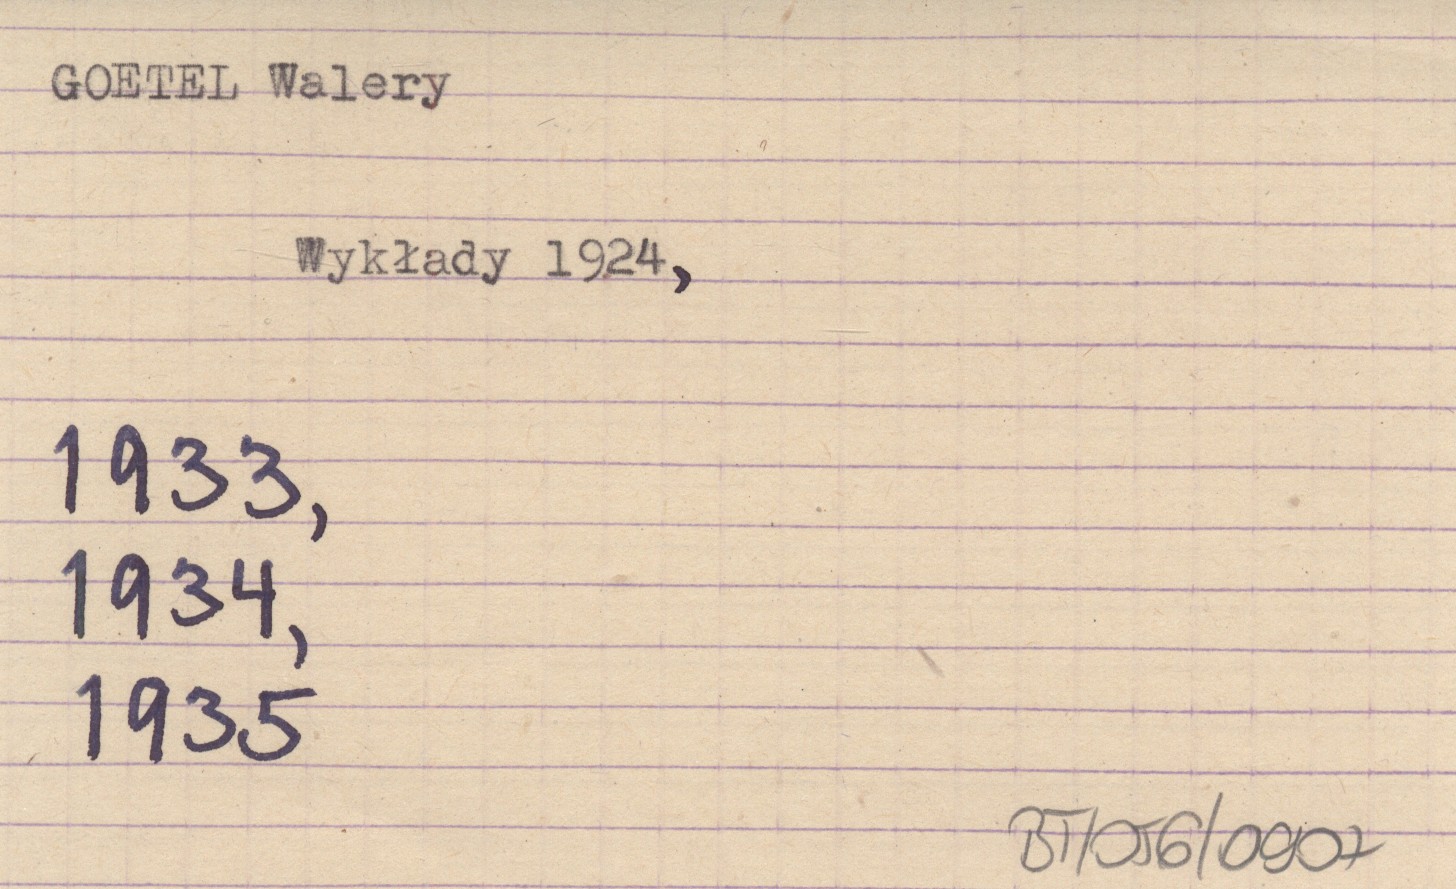 GOETEL Walery
Wykłady 1924,
1933,
1934,
1935
BT/056/0907